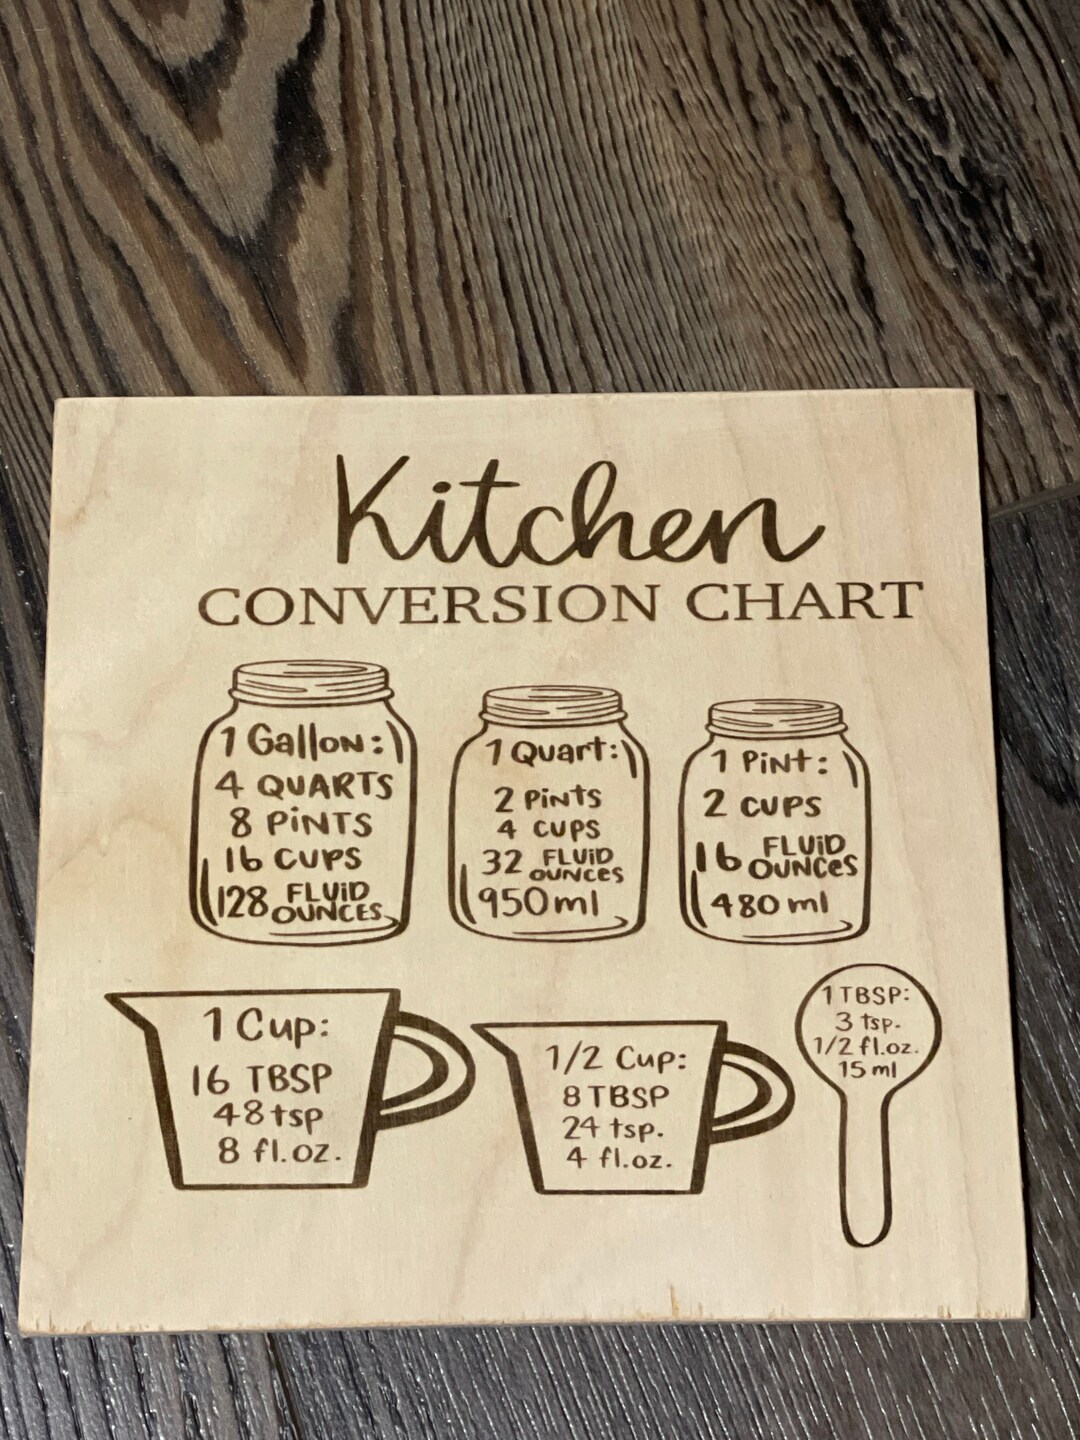 Kitchen
CONVERSION CHART
1 Gallon:
4 QUARTS
8 PiNTS
16 CUPS
128 FLUiD OUNCES
1 Quart:
2 PiNTS
4 CUPS
32 FLUiD OUNCES
950ml
1 PiNt:
2 CUPS
16 FLUiD OUNCES
480 ml
1 Cup:
16 TBSP
48tsp
8 fl.oz.
1/2 Cup:
8 TBSP
24 tsp.
4 fl.oz.
1 TBSP:
3 tsp.
1/2 fl.oz.
15 ml